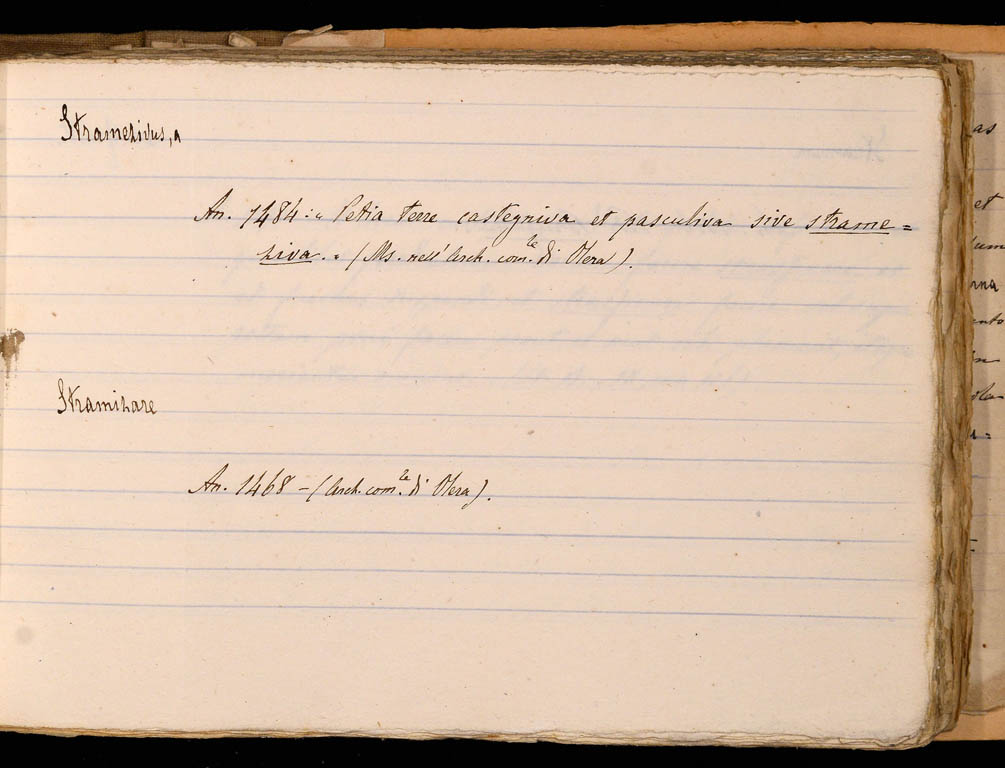 Stramezivus, a
An. 1484: „ Petia terre castegniva et pasculiva sive strame=
ziva. „ (Ms. nell' Arch. com.le di Olera).
Stramizare
An. 1468 – (Arch. com.le di Olera).
as
et